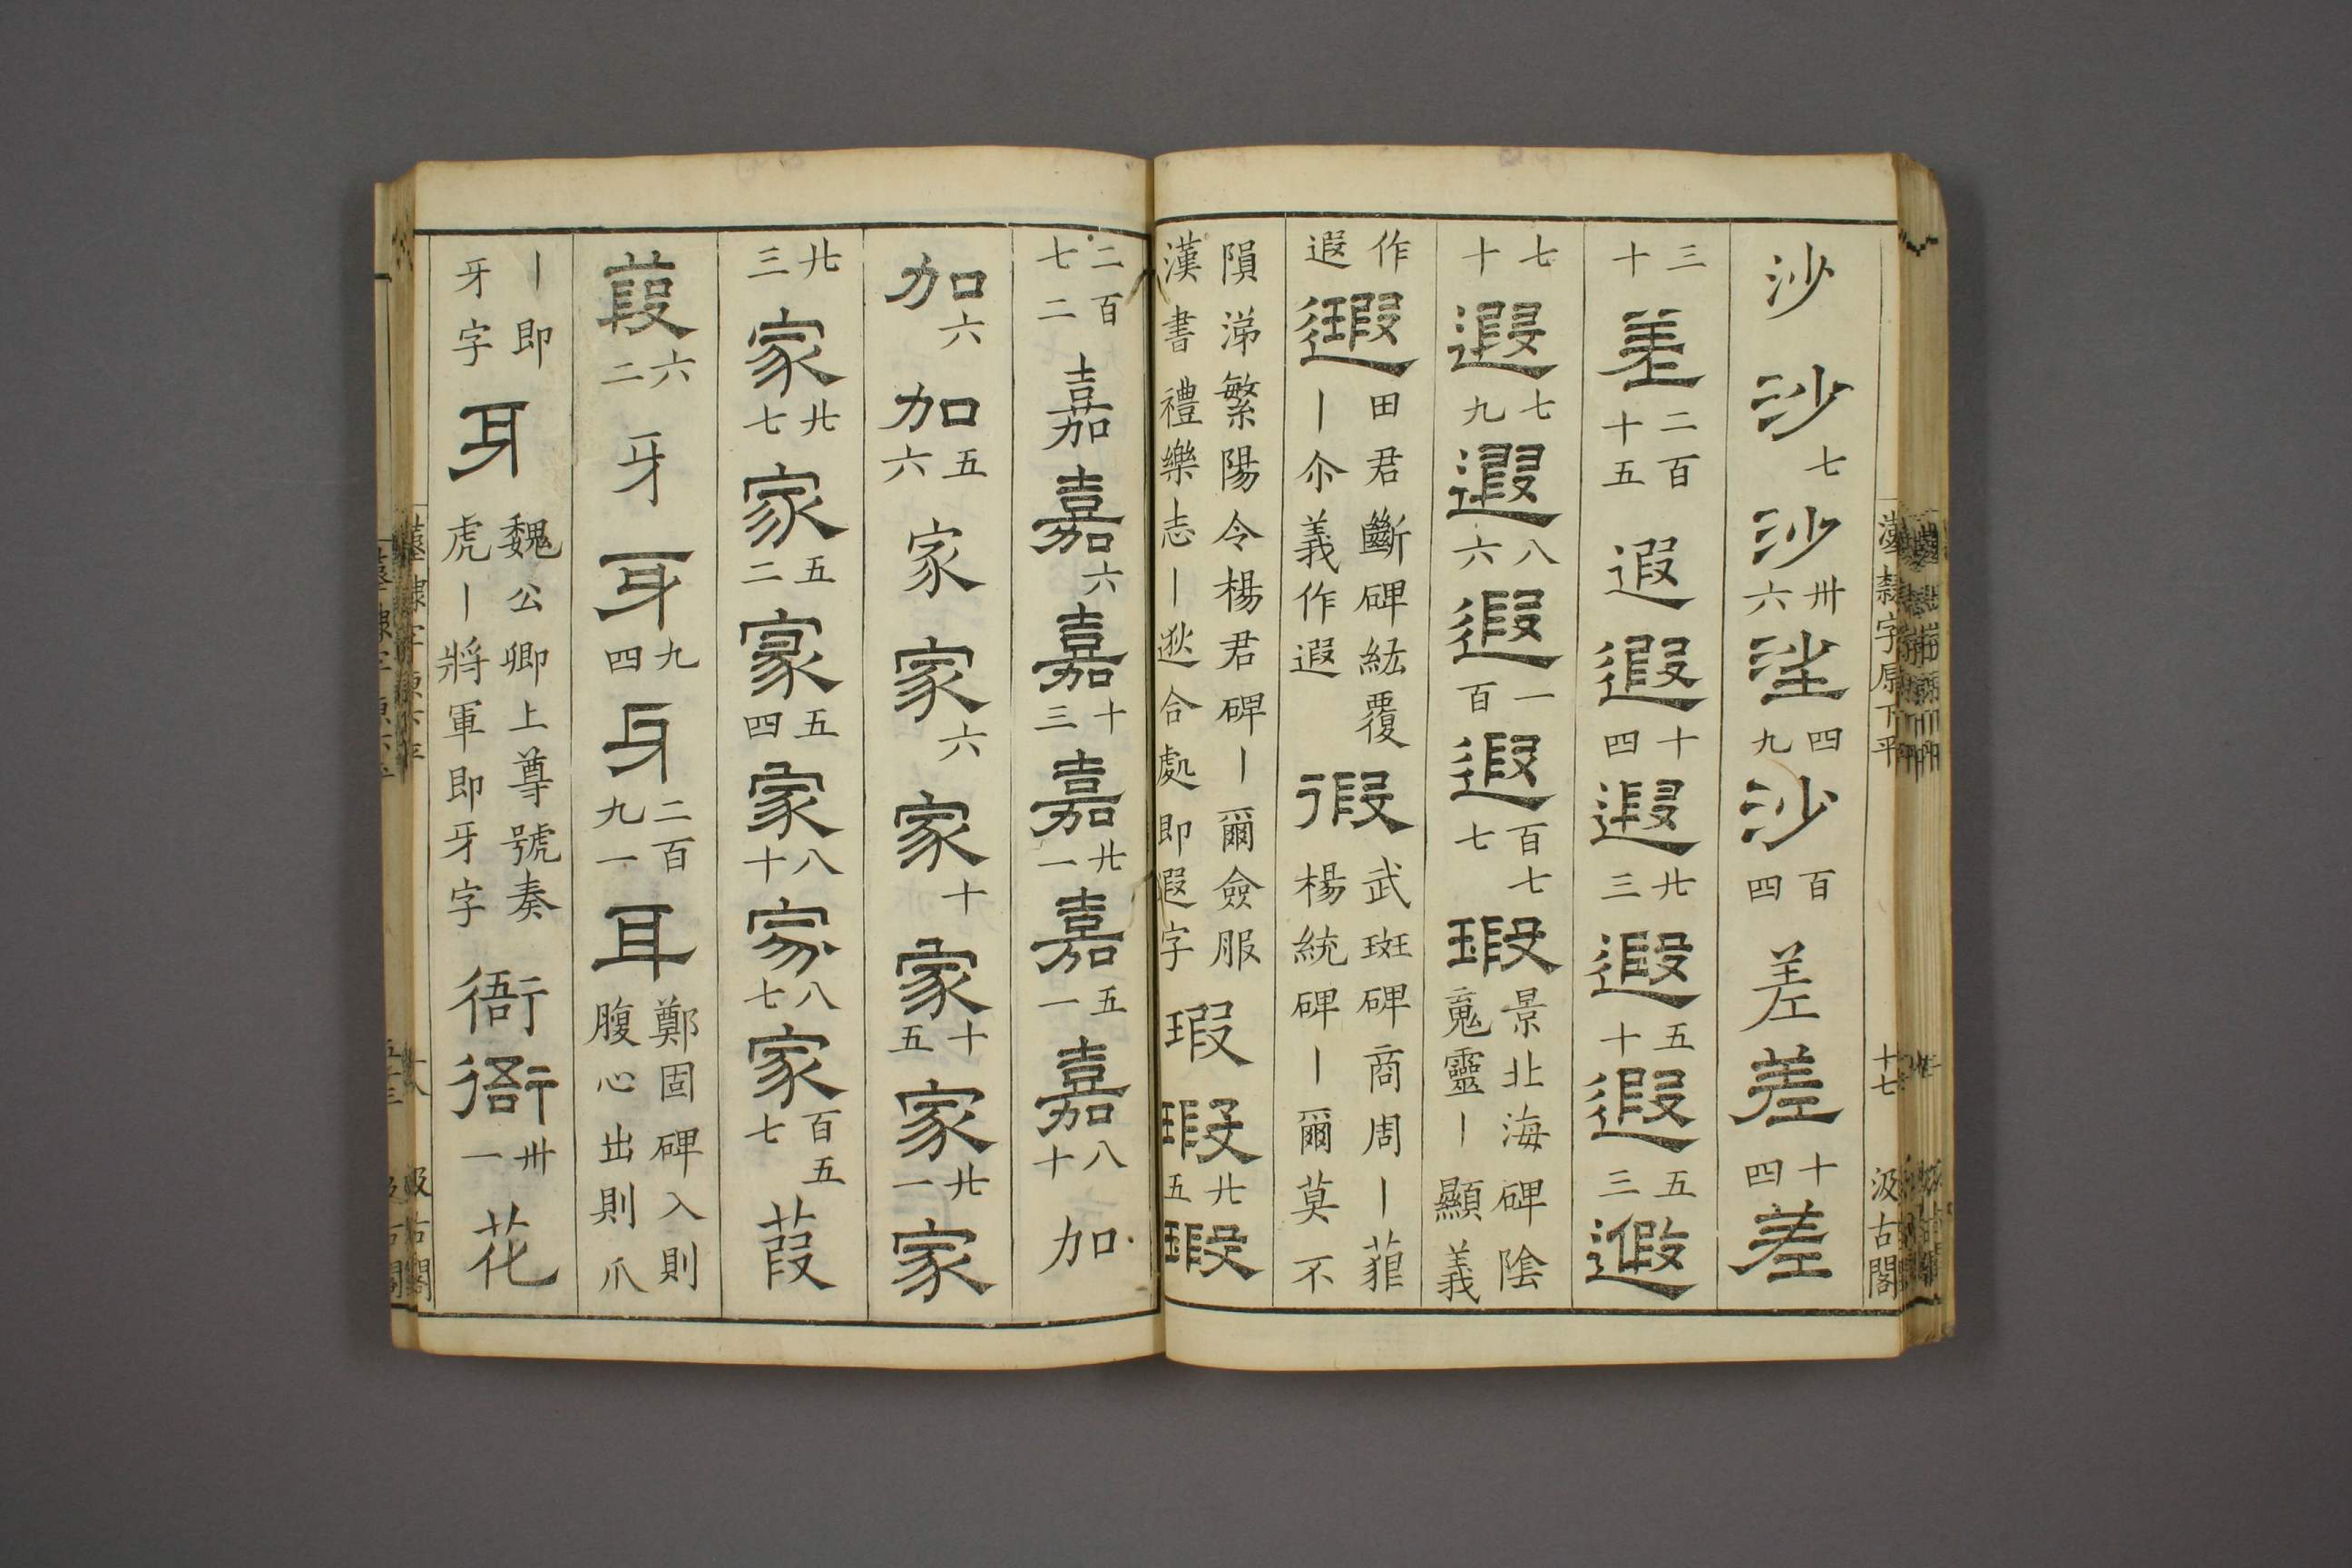 漢隸字原下平 十七 汲古閣
沙 沙 七 沙 卅六 沙 四九 沙 百四 差 差 十四 差
三十 差 二百十五 遐 遐 十四 遐 廿三 遐 五十 遐 五三 遐
七十 遐 七九 遐 八六 遐 一百 遐 百七七 瑕 景北海碑陰䰟靈丨顯義
作遐 遐 田君斷碑紘覆丨尒義作遐 徦 武斑碑商周丨蓷楊統碑丨爾莫不
隕涕繁陽令楊君碑丨爾僉服漢書禮樂志丨逖合處即遐字 瑕 瑕 廿五 瑕
二百七二 嘉 嘉 六 嘉 十三 嘉 廿一 嘉 五一 嘉 八十 加
加 六 加 五六 家 家 六 家 十 家 十五 家 廿一 家
廿三 家 廿七 家 五二 家 五四 家 八十 家 八七 家 百五七 葭
葭 六二 牙 牙 九四 牙 二百九一 耳 鄭固碑入則腹心出則爪
丨即牙字 牙 魏公卿上尊號奏虎丨將軍即牙字 衙 衙 卅一 花